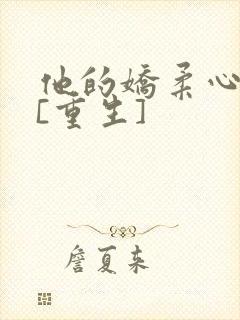 他的娇柔心
[重生]
詹夏来